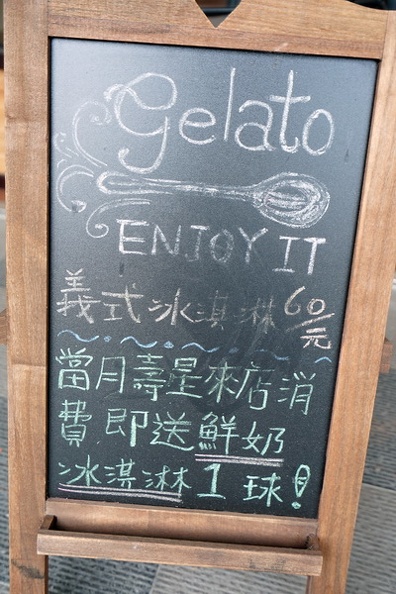 Gelato
ENJOY IT
義式冰淇淋 60/元
當月壽星來店消
費.即送鮮奶
冰淇淋 1 球!